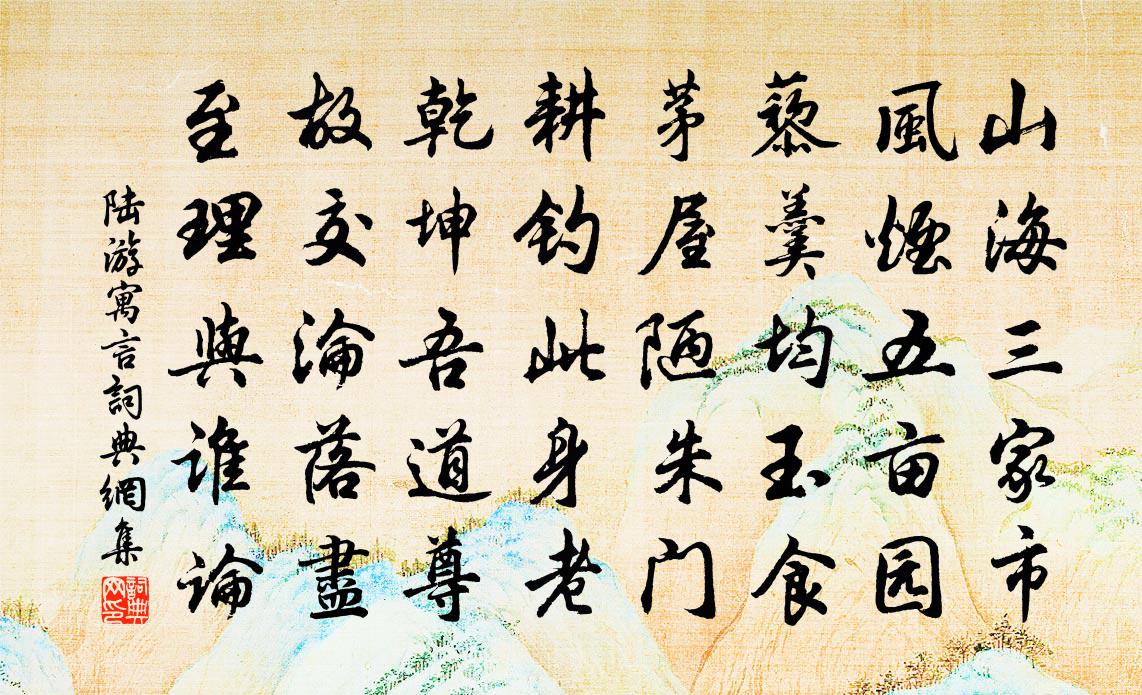 山海三家市
風煙五亩园
藜羹均玉食
茅屋陋朱门
耕钓此身老
乾坤吾道尊
故交淪落盡
至理與誰論
陆游寓言詞典網集
詞典网印